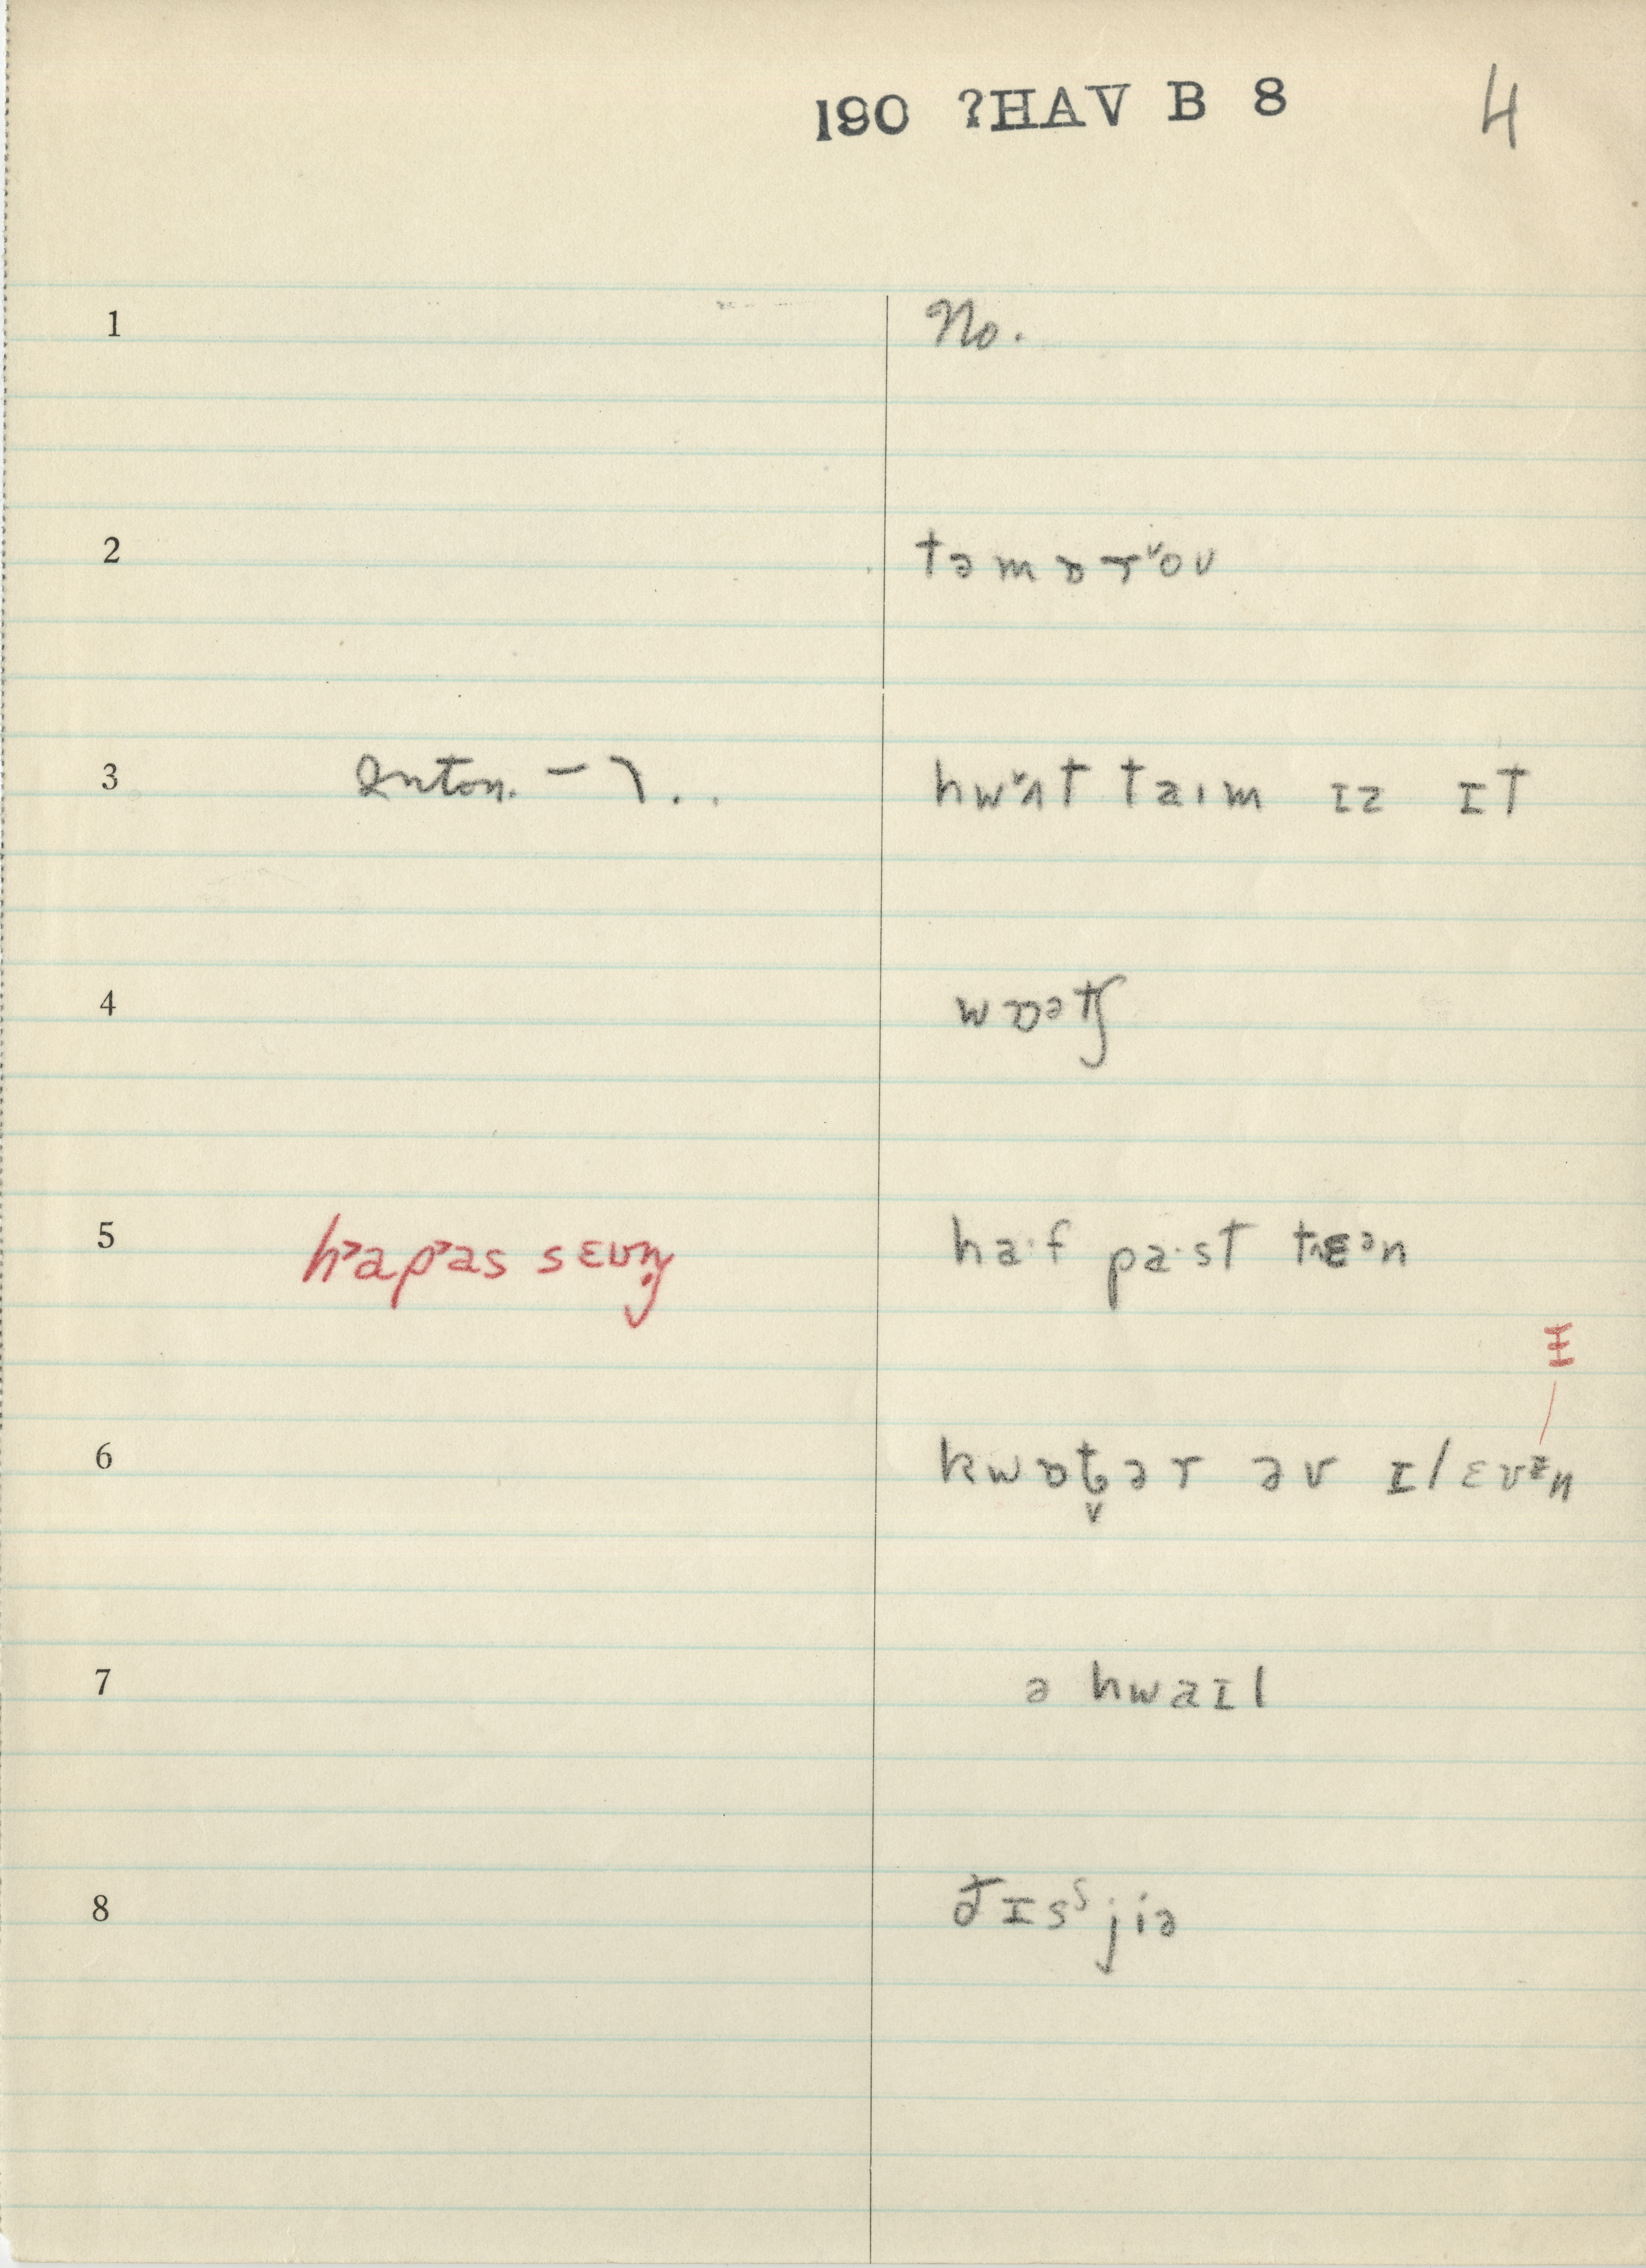 190 ?HAV B 8 4
1 No.
2 təmɒrˇoʊ
3 Inton. – ⌝ . . hwˇʌt taɪm ɪz ɪt
4 wɒətʃ
5 h˃ap˃as sɛvm̩ ha·f pa·st tɛᵊn
ɪ̵
6 kwɒt̬ər əv ɪlɛvᵻn
7 ə hwaɪl
8 ðɪsˢjiə